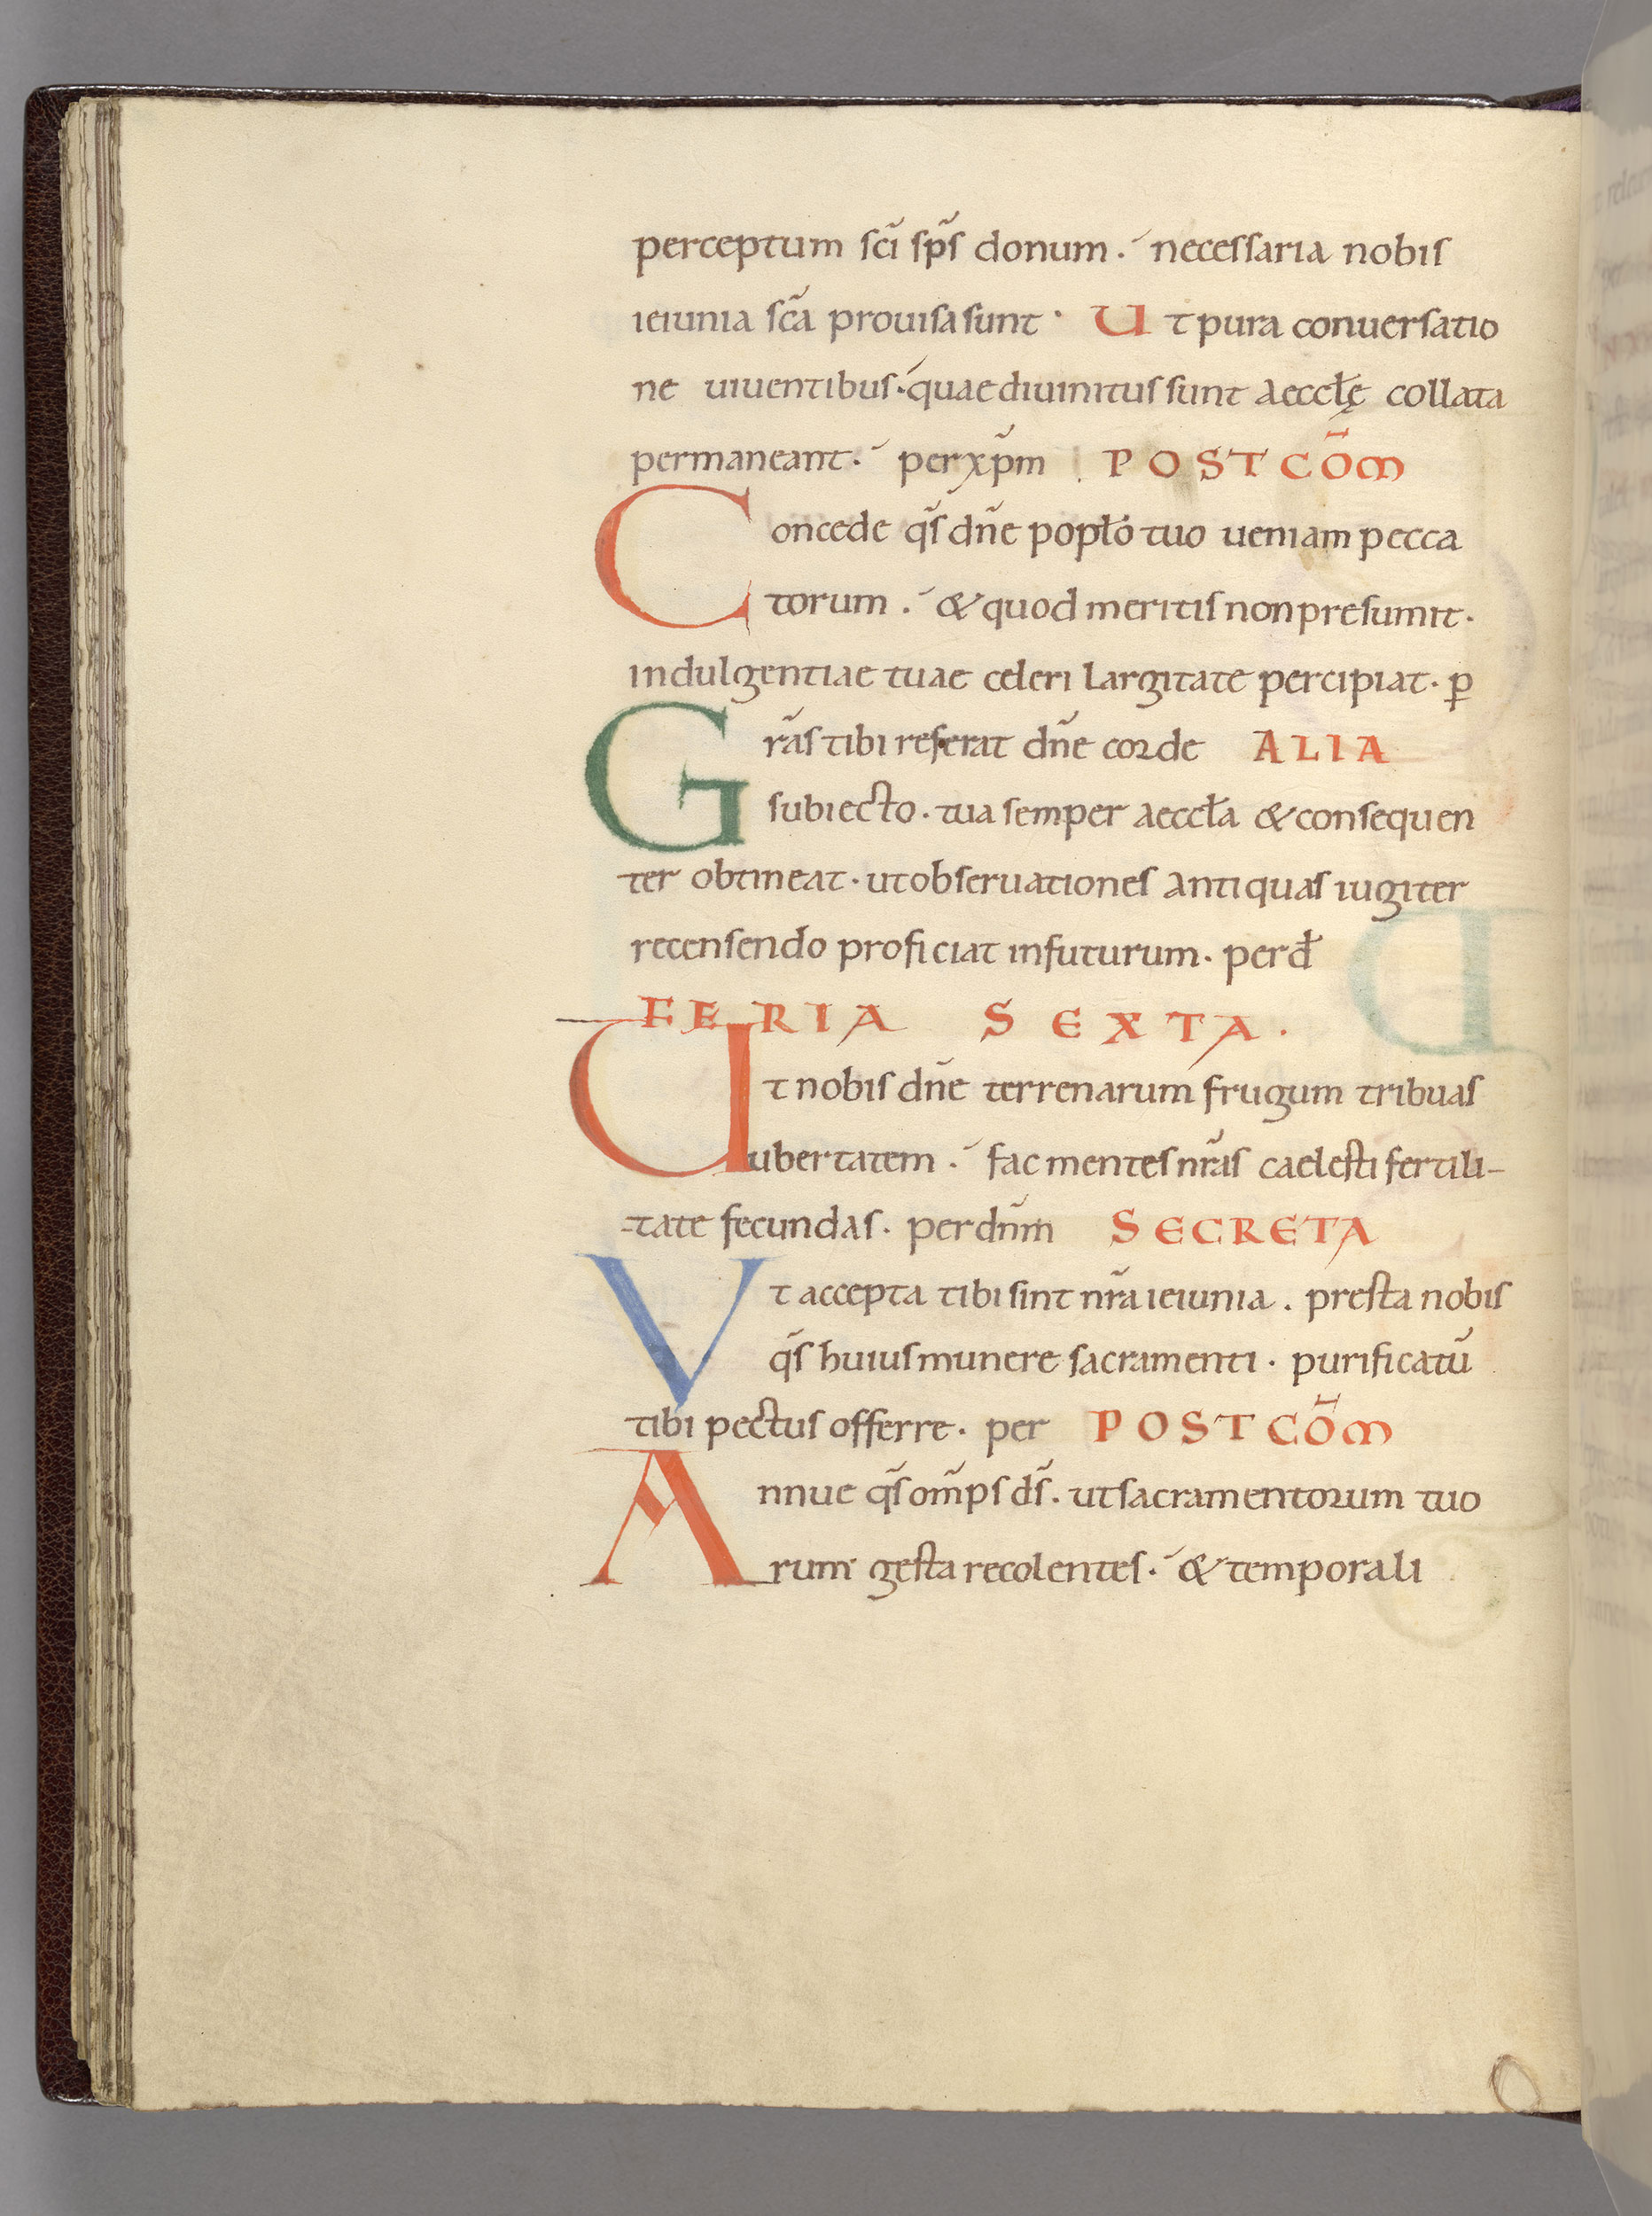 perceptum sc̃i sp̃s donum. necessaria nobis
ieiunia sc̃a prouisa sunt. Ut pura conuersatio
ne uiuentibus. quae diuinitus sunt aeccłę collata
permaneant. per xp̃m POST CÕM
Concede q̃s dñe popło tuo ueniam pecca
torum. & quod meritis non presumit.
indulgentiae tuae celeri largitate percipiat. p̱
Grãs tibi referat dñe corde ALIA
subiecto. tua semper aeccła & consequen
ter obtineat. ut obseruationes antiquas iugiter
recensendo proficiat in futurum. per đ
FERIA SEXTA.
Ut nobis dñe terrenarum frugum tribuas
ubertatem. fac mentes nr̃as caelesti fertili-
-tate fecundas. per dñm SECRETA
Vt accepta tibi sint nr̃a ieiunia. presta nobis
q̃s huius munere sacramenti. purificatũ
tibi pectus offerre. per POST CÕM
Annue q̃s om̃ps ds̃. ut sacramentorum tuo
rum gesta recolentes. & temporali